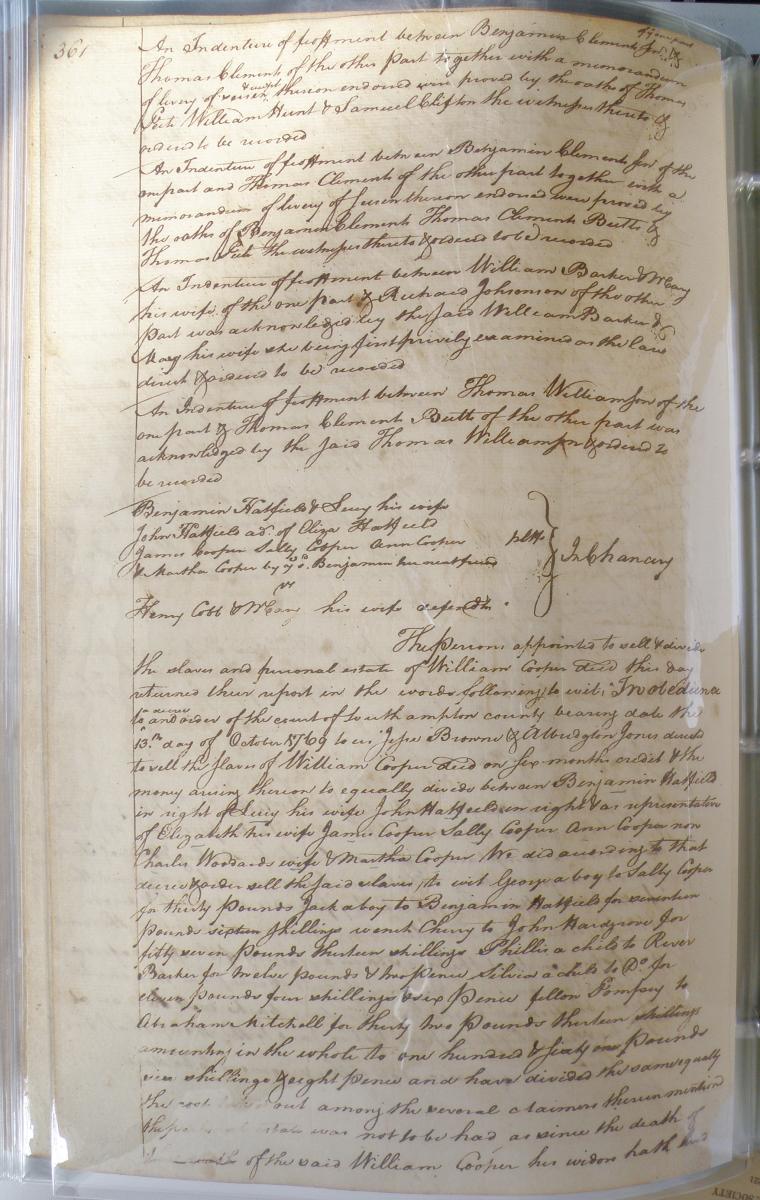 361
of the one part
An Indenture of feoffment between Benjamin Clements Junr &
Thomas Clements of the other part together with a memorandum
of livery of seisin thereon endorsed were proved by the oaths of Thomas
William Hunt & Samuel Clifton the witnesses thereto &
ordered to be recorded
An Indenture of feoffment between Benjamin Clements Junr of the
one part and Thomas Clements of the other part together with a
memorandum of livery of Seisin thereon endorsed were proved by
the oaths of Benjamin Clements Thomas Clements Butts &
Thomas the witnesses thereto & ordered to be recorded
An Indenture of feoffment between William Barker & Mary
his wife of the one part & Richard Johnson of the other
part was acknowledged by the said William Barker &
Mary his wife she being first privily examined as the law
direct & ordered to be recorded
An Indenture of feoffment between Thomas Williamson of the
one part & Thomas Clements Butts of the other part was
acknowledged by the said Thomas Williamson & ordered to
be recorded
Benjamin Hatfield & Lucy his wife
John Hatfield ad. of Eliza Hatfield
James Cooper Sally Cooper Ann Cooper
& Martha Cooper by ye sd. Benjamin her next friend
plts
In Chancery
vs
Henry Cobb & Mary his wife defendts
The Persons appointed to sell & divide
the slaves and personal estate of William Cooper decd this day
returned their report in the words following, to wit, "In obedience
to a decree and order of the court of Southampton county bearing date the
13th day of October 1769 to us Jesse Browne & Albridgton Jones directed
to sell the slaves of William Cooper decd on six months credit & the
money arising thereon to equally divide between Benjamin Hatfield
in right of Lucy his wife John Hatfield in right & as representative
of Elizabeth his wife James Cooper Sally Cooper Ann Cooper now
Charles Woodards wife & Martha Cooper We did according to that
decree & order sell the said slaves, to wit George a boy to Sally Cooper
for thirty Pounds Jack a boy to Benjamin Hatfield for seventeen
pounds sixteen shillings wench Cherry to John Hardgrove for
fifty seven Pounds thirteen shillings Phillis a child to River
Barker for twelve pounds & two pence Silvia a child to Do. for
eleven pounds four shillings & six Pence fellow Pompey to
Abraham Mitchell for thirty two Pounds thirteen shillings
amounting in the whole to one hundred & sixty one Pounds
shillings & eight pence and have divided the same equally
the cost out among the several claimers therein mention
the estate was not to be had as since the death of
of the said William Cooper his widow hath